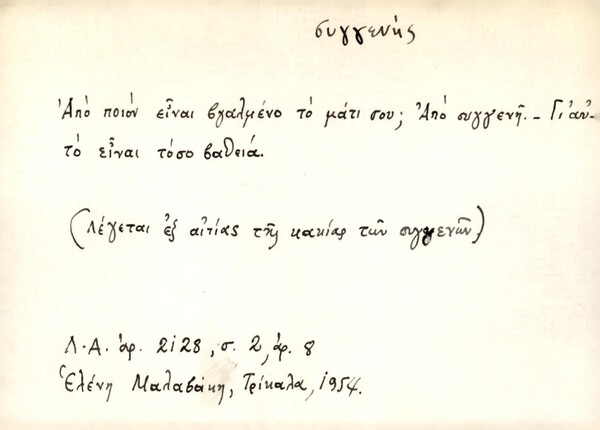 συγγενής
Ἀπό ποιόν εἶναι βγαλμένο τό μάτι σου; Ἀπό συγγενῆ. – Γι' αὐ-
τό εἶναι τόσο βαθειά.
(Λέγεται ἐξ αἰτίας τῆς κακίας τῶν συγγενῶν)
Λ.Α. ἀρ. 2128, σ. 2, ἀρ. 8
Ἑλένη Μαλαβάκη, Τρίκαλα, 1954.